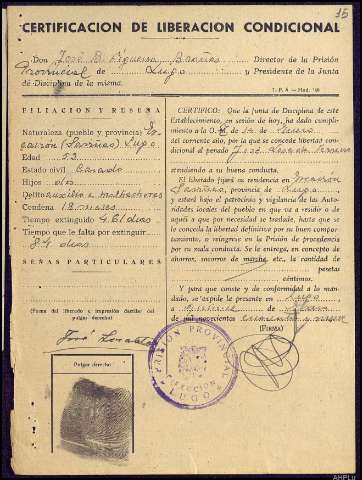 35
CERTIFICACION DE LIBERACION CONDICIONAL
Don José B. Figueira Director de la Prisión
Provincial de Lugo y Presidente de la Junta
de Disciplina de la misma.
FILIACION Y RESEÑA
Naturaleza (pueblo y provincia)
(Sarria) Lugo
Edad 53
Estado civil Casado
Hijos dos
Delito auxilio a malhechores
Condena 18 meses
Tiempo extinguido 461 días
Tiempo que le falta por extinguir
84 días
SEÑAS PARTICULARES
(Firma del liberado e impresión dactilar del
pulgar derecho)
José
Pulgar derecho
CERTIFICO: Que la Junta de Disciplina de este
Establecimiento, en sesión de hoy, ha dado cumplimiento
a la O. M. de 14 de
del corriente año, por la que se concede libertad condicional
al penado José
atendiendo a su buena conducta.
El liberado fijará su residencia en
Sarria, provincia de Lugo
y estará bajo el patronato y vigilancia de las Autoridades
locales del pueblo en que va a residir o de
aquél a que por necesidad se traslade, hasta que se
le conceda la libertad definitiva por su buen comportamiento,
o reingrese en la Prisión de procedencia
por su mala conducta. Se le entrega, en concepto de
ahorros, socorros de marcha, etc., la cantidad
pesetas
céntimos.
Y para que conste y de conformidad a lo mandado,
se expide le presente en Lugo
a de
de mil novecientos cuarenta y nueve
(FIRMA)
PRISION PROVINCIAL
DIRECCION
LUGO
AHPLu